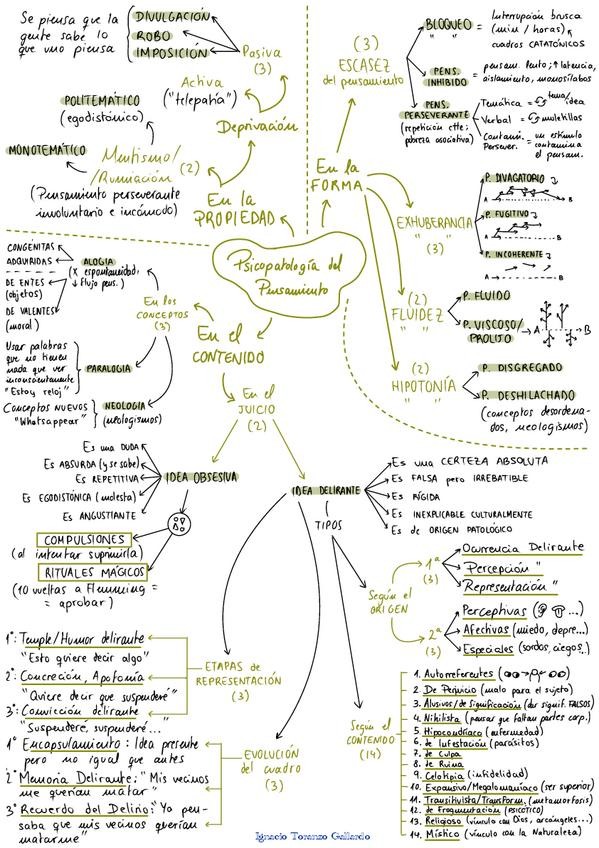 Se piensa que la
gente sabe lo
que uno piensa
DIVULGACIÓN
ROBO
IMPOSICIÓN
Pasiva
(3)
Activa
("telepatía")
Deprivación
POLITEMÁTICO
(egodistónico)
MONOTEMÁTICO
Mentismo/
/Rumiación
(2)
(Pensamiento perseverante
involuntario e incómodo)
En la
PROPIEDAD
(3)
ESCASEZ
del pensamiento
BLOQUEO
" "
= Interrupción brusca
(min/horas)
cuadros CATATÓNICOS
PENS.
INHIBIDO
= pensam. lento; ↑latencia,
aislamiento, monosílabos
PENS.
PERSEVERANTE
(repetición ctte;
pobreza asociativa)
Temática = tema/idea
Verbal = muletillas
Contami.
Persever. = un estímulo
contamina
el pensam.
En la
FORMA
EXHUBERANCIA
" "
(3)
P. DIVAGATORIO
A B
P. FUGITIVO
A B
P. INCOHERENTE
A B
(2)
FLUIDEZ
" "
P. FLUIDO
P. VISCOSO/
PROLIJO
A B
(2)
HIPOTONÍA
" "
P. DISGREGADO
P. DESHILACHADO
(conceptos desordena-
dos, neologismos)
Psicopatología del
Pensamiento
CONGÉNITAS
ADQUIRIDAS
DE ENTES
(objetos)
DE VALENTES
(moral)
ALOGIA
(X espontaneidad,
↓ flujo pens.)
En los
CONCEPTOS
(3)
Usar palabras
que no tienen
nada que ver
inconscientemente
"Estoy reloj"
PARALOGIA
Conceptos NUEVOS
"Whatsappear"
NEOLOGIA
(neologismos)
En el
CONTENIDO
En el
JUICIO
(2)
Es una DUDA
Es ABSURDA (y se sabe)
Es REPETITIVA
Es EGODISTÓNICA (molesta)
Es ANGUSTIANTE
IDEA OBSESIVA
COMPULSIONES
(al intentar suprimirla)
RITUALES MÁGICOS
(10 vueltas a Flemming =
= aprobar)
IDEA DELIRANTE
Es una CERTEZA ABSOLUTA
Es FALSA pero IRREBATIBLE
Es RÍGIDA
Es INEXPLICABLE CULTURALMENTE
Es de ORIGEN PATOLÓGICO
TIPOS
Según el
ORIGEN
1ª
(3)
Ocurrencia Delirante
Percepción "
Representación "
2ª
(3)
Perceptivas
Afectivas (miedo, depre...)
Especiales (sordos, ciegos..)
1º: Temple/Humor delirante
"Esto quiere decir algo"
2º: Concreción, Apofanía
"Quiere decir que suspenderé"
3º: Convicción delirante
"Suspenderé, suspenderé..."
ETAPAS de
REPRESENTACIÓN
(3)
1º Encapsulamiento: Idea presente
pero no igual que antes
2º Memoria Delirante: "Mis vecinos
me querían matar"
3º Recuerdo del Delirio: "Yo pen-
saba que mis vecinos querían
matarme"
EVOLUCIÓN
del cuadro
(3)
Según el
CONTENIDO
(14)
1. Autorreferentes
2. De Perjuicio (malo para el sujeto)
3. Alusivos/de significación (dar signif. FALSOS)
4. Nihilista (pensar que faltan partes corp.)
5. Hipocondríaco (enfermedad)
6. de Infestación (parásitos)
7. de Culpa
8. de Ruina
9. Celotipia (infidelidad)
10. Expansivo/Megalomaníaco (ser superior)
11. Transitivista/Transform. (metamorfosis)
12. de Fragmentación (psicótico)
13. Religioso (vínculo con Dios, arcángeles...)
14. Místico (vínculo con la Naturaleza)
Ignacio Toranzo Gallardo